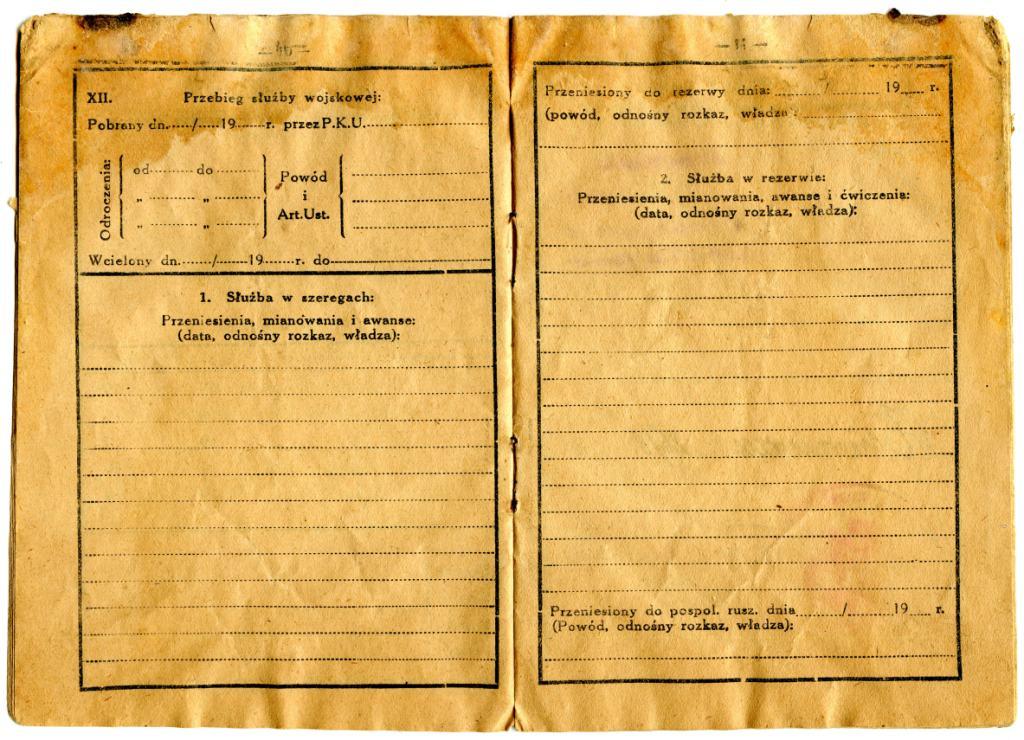 XII. Przebieg służby wojskowej:
Pobrany dn....../......19.......r. przez P.K.U.
Odroczenia:
od.......... do ..........
„ .......... „ ..........
„ .......... „ ..........
Powód
i
Art.Ust.
Wcielony dn......../.......19.......r. do
1. Służba w szeregach:
Przeniesienia, mianowania i awanse:
(data, odnośny rozkaz, władza):
— 11 —
Przeniesiony do rezerwy dnia: ........../.......... 19..... r.
(powód, odnośny rozkaz, władza):
2. Służba w rezerwie:
Przeniesienia, mianowania, awanse i ćwiczenia:
(data, odnośny rozkaz, władza):
Przeniesiony do pospol. rusz. dnia........../.......... 19..... r.
(Powód, odnośny rozkaz, władza):